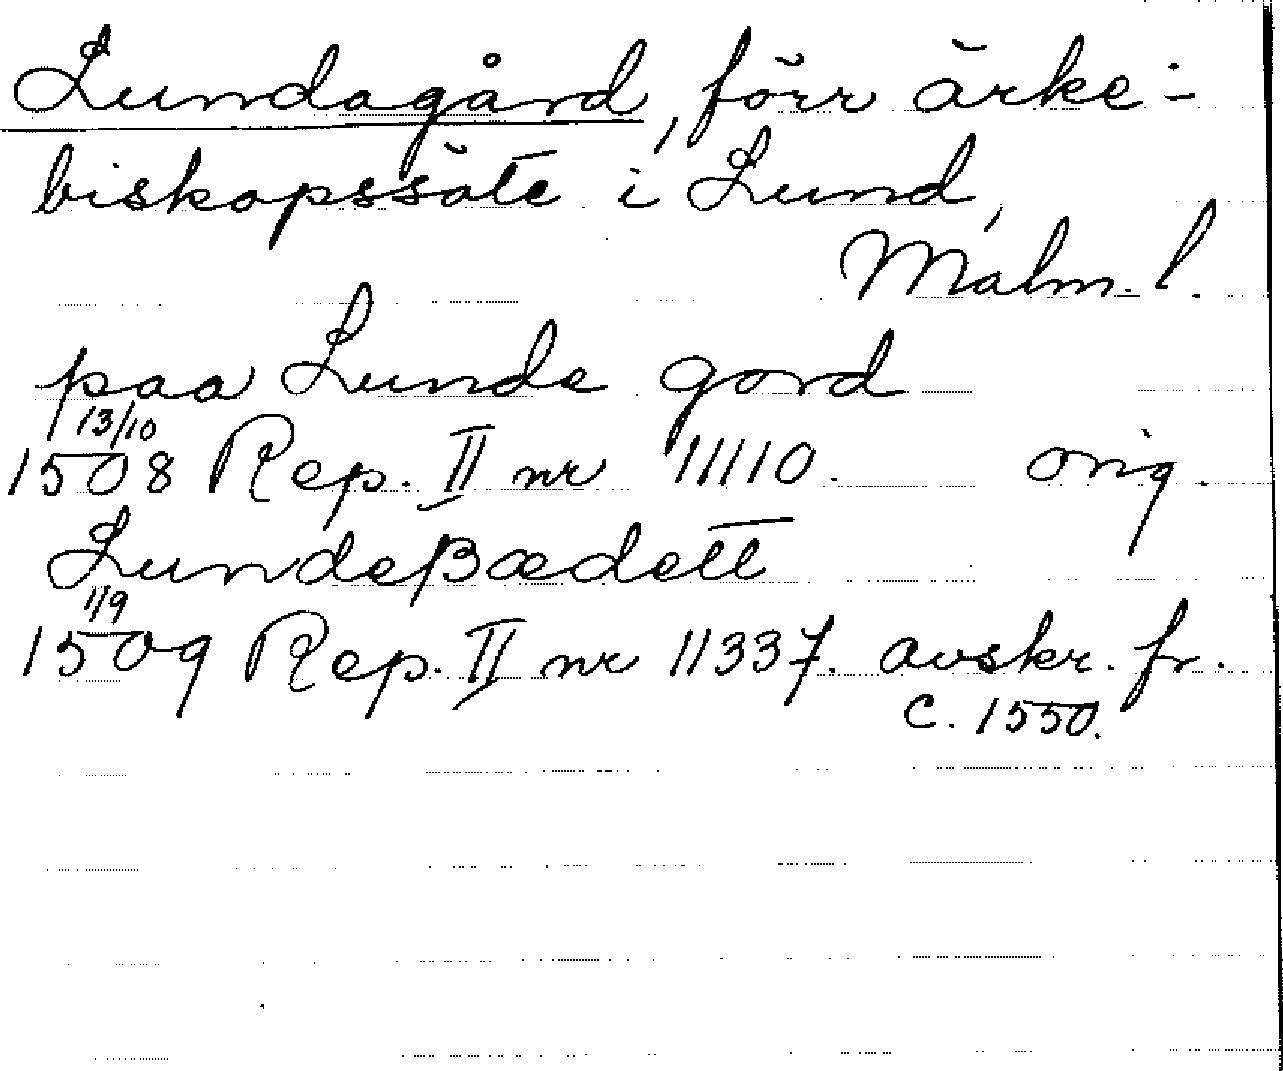 Lundagård, förr ärke-
biskopssäte i Lund,
Malm. l.
paa Lunde gord
13/10
1508 Rep. II nr 11110. orig.
Lundeßædett
1/9
1509 Rep. II nr 11337. avskr. fr.
c. 1550.